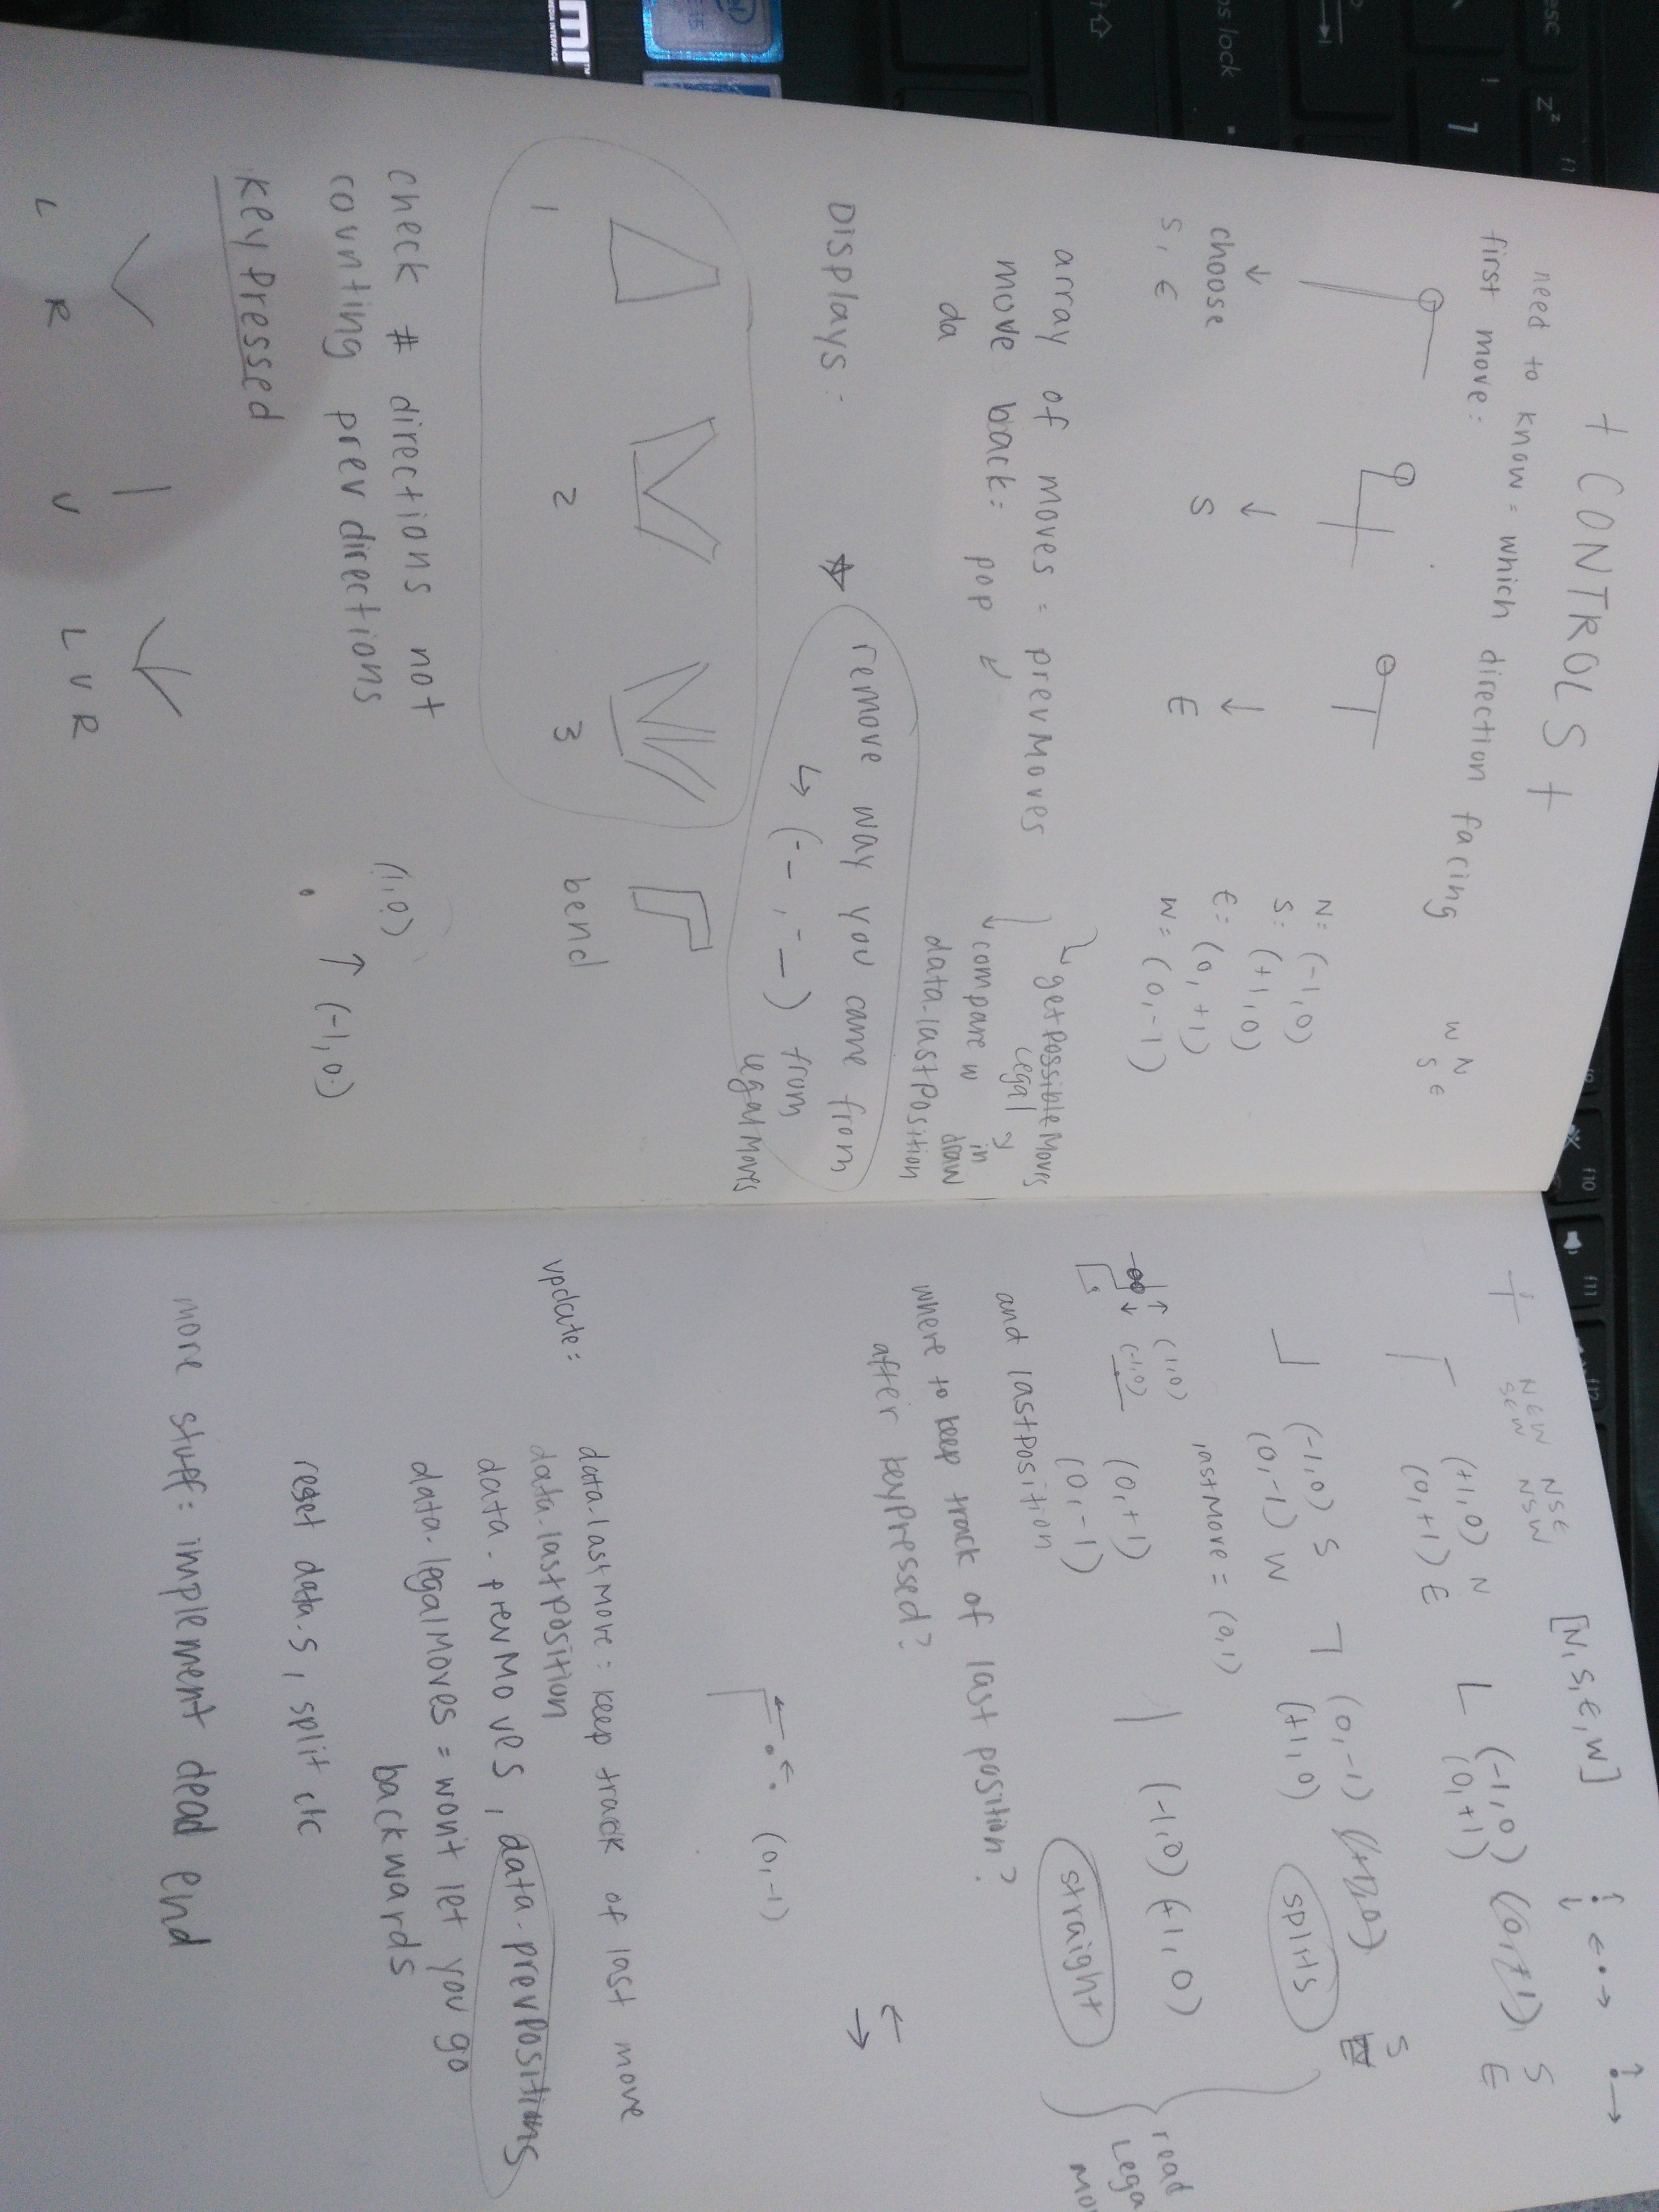 + CONTROLS +
need to know = which direction facing
first move:
N
W E
S
choose
S, E
S
E
N: (-1, 0)
S: (+1, 0)
E: (0, +1)
W: (0, -1)
array of moves = prevMoves
move back: pop
da
getPossibleMoves
Legal
compare w
data.lastPosition
in
draw
Displays:
remove way you came from
(-_, -_) from
legalMoves
1
2
3
bend
check # directions not
counting prev directions
(1,0)
(-1,0)
KeyPressed
L R
U
L U R
[N,S,E,W]
NEW NSE,
SEW NSW
(+1,0) N
(0,+1) E
(-1,0)
(0,+1)
S
E
(-1,0) S
(0,-1) W
(0,-1)
(+1,0)
splits
S
lastMove = (0,1)
(1,0)
(-1,0)
(0,+1)
(0,-1)
(-1,0) (+1,0)
straight
read
Lega
mo
and lastPosition
where to keep track of last position?
after keyPressed?
(0,-1)
update:
data.lastMove: keep track of last move
data.lastPosition
data.prevMoves, data.prevPositions
data.legalMoves = won't let you go
backwards
reset data.s, split etc
more stuff: implement dead end
esc
f1
f10
f11
f12
ps lock
MEDIA INTERFACE